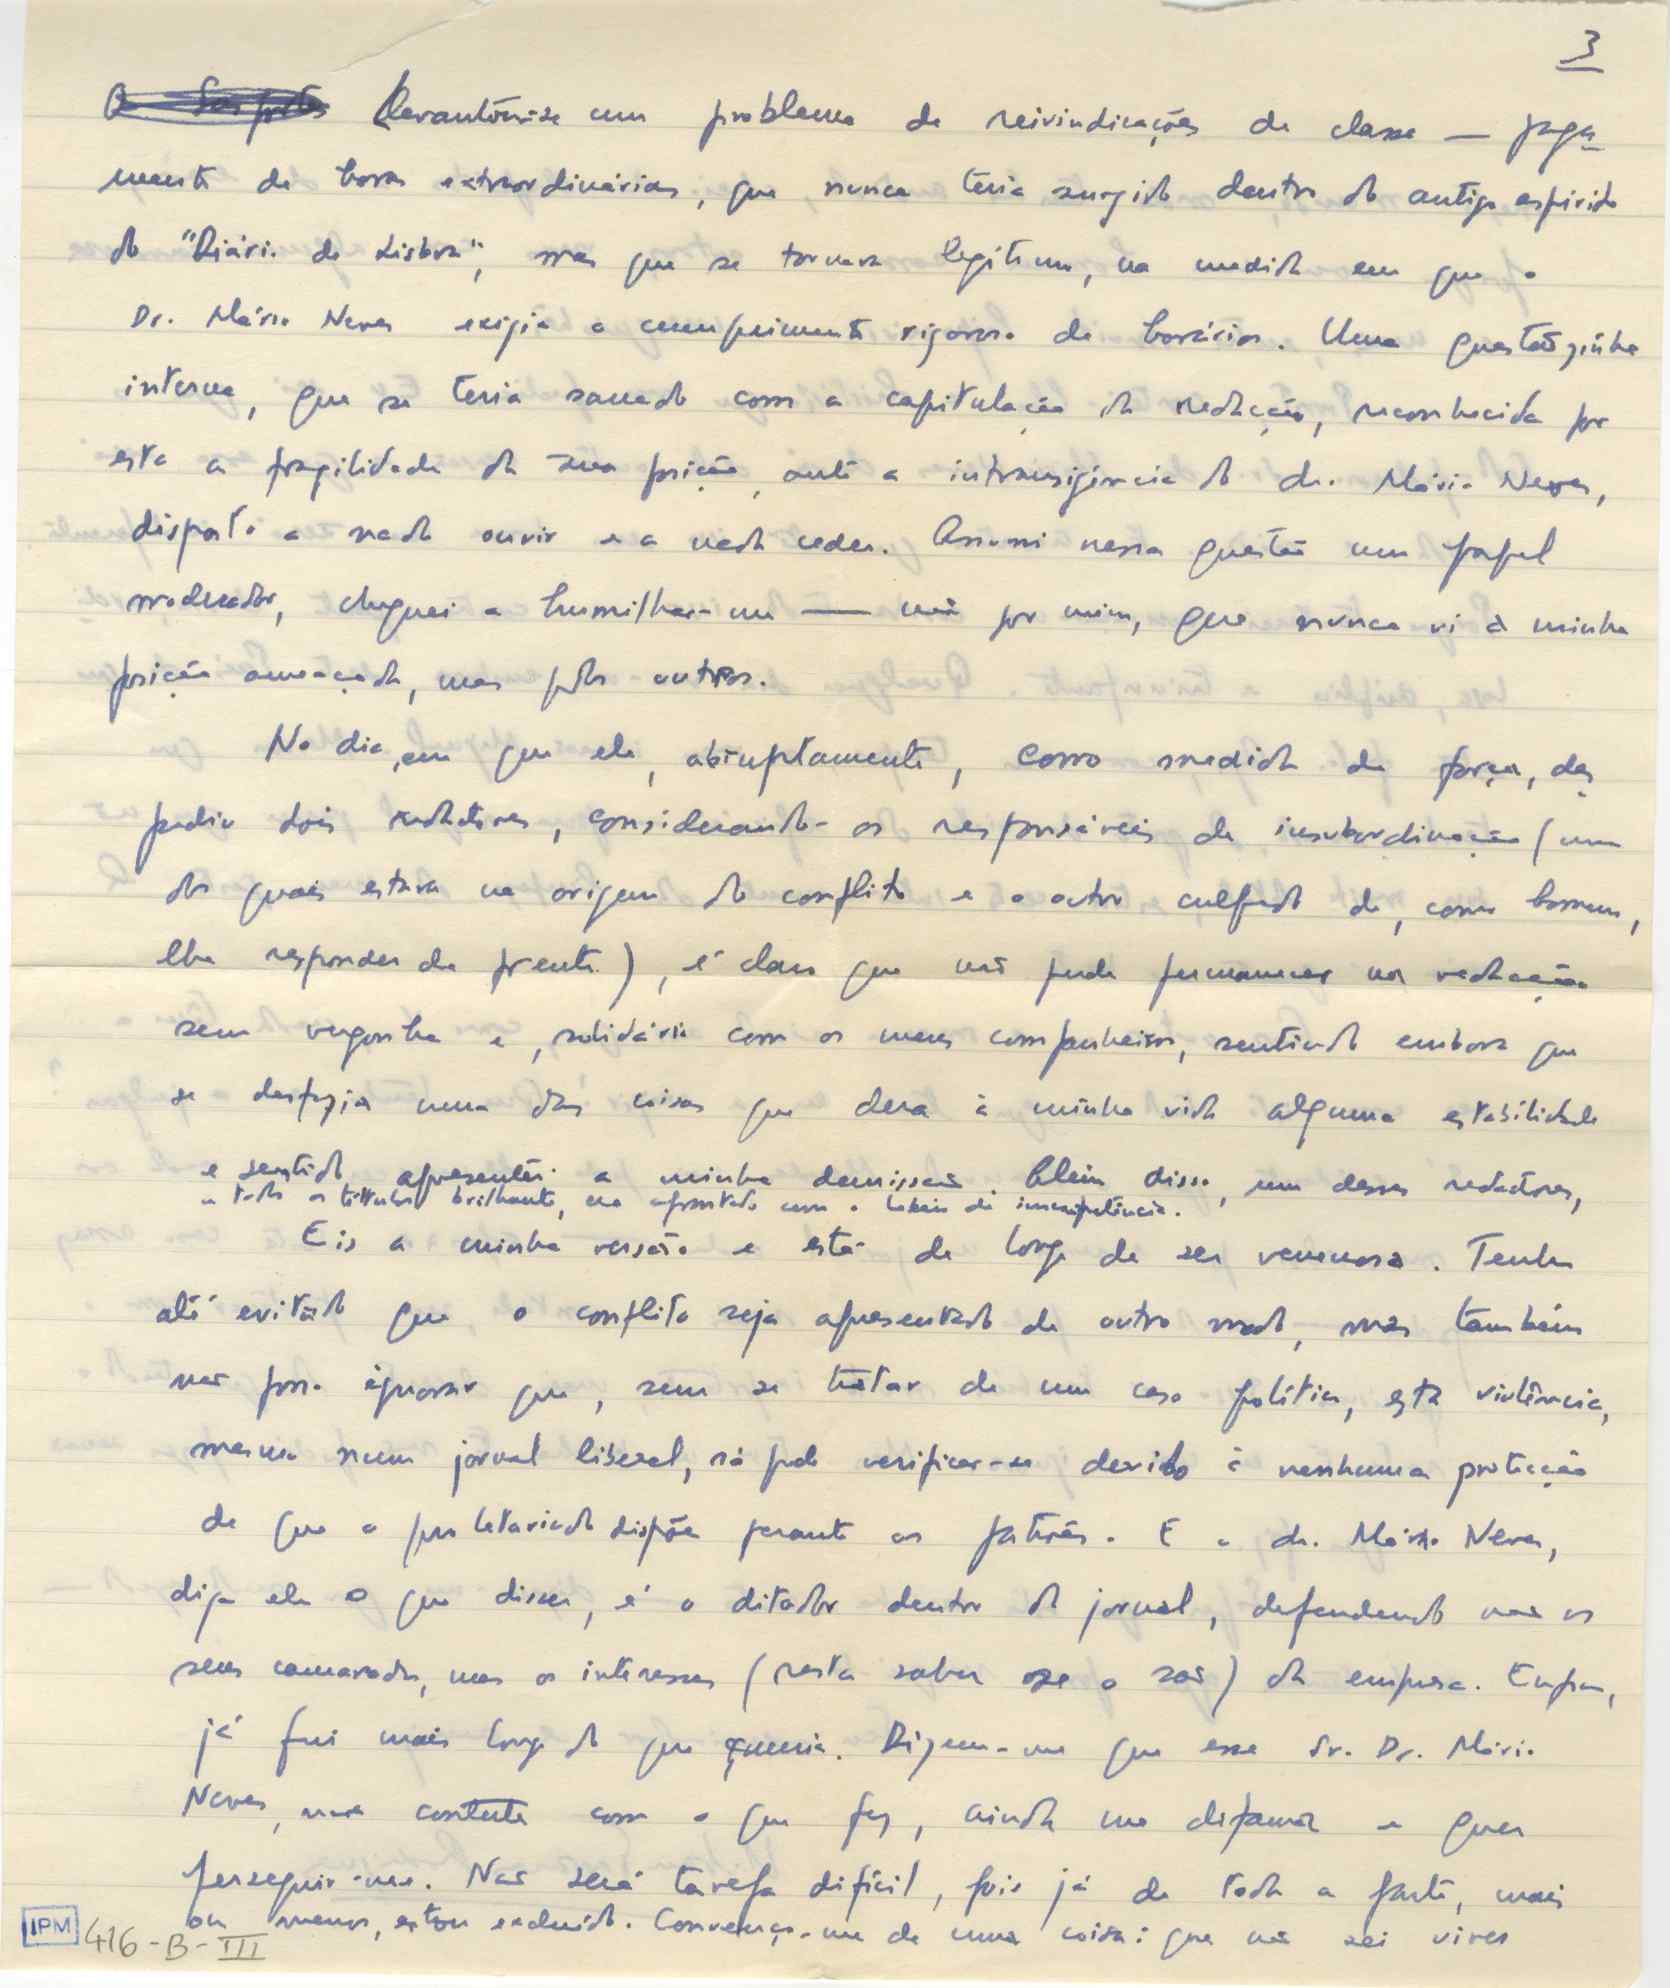 3
Levantou-se um problema de reivindicações de classe — paga-
mento de horas extraordinárias, que nunca teria surgido dentro do antigo espírito
do "Diário de Lisboa", mas que se tornava legítimo, na medida em que o
Dr. Mário Neves exigia o cumprimento rigoroso de horários. Uma questãozinha
interna, que se teria sanado com a capitulação da redacção, reconhecida por
esta a fragilidade da sua posição, ante a intransigência do dr. Mário Neves,
disposto a nada ouvir e a nada ceder. Assumi nessa questão um papel
moderador, cheguei a humilhar-me — não por mim, que nunca vi a minha
posição ameaçada, mas pelos outros.
No dia em que ele, abruptamente, como medida de força, des
pediu dois redactores, considerando-os responsáveis de insubordinação (um
dos quais estava na origem do conflito e o outro culpado de, como homem,
lhe responder de frente), é claro que não pude permanecer na redacção
sem vergonha e, solidário com os meus companheiros, sentindo embora que
se desfazia uma das coisas que dera à minha vida alguma estabilidade
e sentido, apresentei a minha demissão. Além disso, um desses redactores,
a todos os títulos brilhante, era apontado com o labéu de incompetência.
Eis a minha versão e está de longe de ser venenosa. Tenho
até evitado que o conflito seja apresentado de outro modo, mas também
não posso ignorar que, sem se tratar de um caso político, esta violência,
mesmo num jornal liberal, só pode verificar-se devido à nenhuma protecção
de que o proletariado dispõe perante os patrões. E o dr. Mário Neves,
diga ele o que disser, é o ditador dentro do jornal, defendendo não os
seus camaradas, mas os interesses (resta saber se o são) da empresa. Enfim,
já fui mais longe do que queria. Dizem-me que esse Sr. Dr. Mário
Neves, não contente com o que fez, ainda me difama e quer
perseguir-me. Não será tarefa difícil, pois já de toda a parte, mais
ou menos, estou excluído. Convenço-me de uma coisa: que não sei viver
IPM 416-B-III